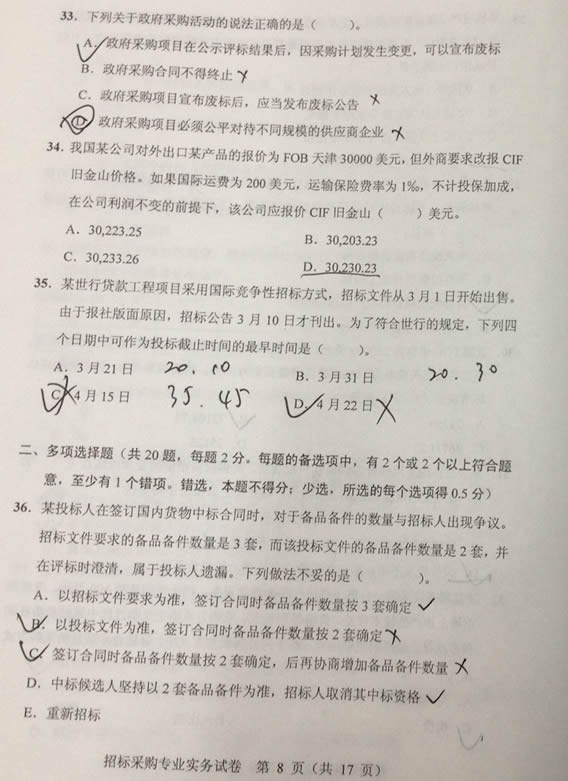 33．下列关于政府采购活动的说法正确的是（　　）。
A．政府采购项目在公示评标结果后，因采购计划发生变更，可以宣布废标
B．政府采购合同不得终止
C．政府采购项目宣布废标后，应当发布废标公告
D．政府采购项目必须公平对待不同规模的供应商企业
34．我国某公司对外出口某产品的报价为 FOB 天津 30000 美元，但外商要求改报 CIF
旧金山价格。如果国际运费为 200 美元，运输保险费率为 1‰，不计投保加成，
在公司利润不变的前提下，该公司应报价 CIF 旧金山（　　）美元。
A．30,223.25　　B．30,203.23
C．30,233.26　　D．30,230.23
35．某世行贷款工程项目采用国际竞争性招标方式，招标文件从 3 月 1 日开始出售。
由于报社版面原因，招标公告 3 月 10 日才刊出。为了符合世行的规定，下列四
个日期中可作为投标截止时间的最早时间是（　　）。
A．3 月 21 日　20．10　　B．3 月 31 日　20．30
C．4 月 15 日　35．45　　D．4 月 22 日
二、多项选择题（共 20 题，每题 2 分。每题的备选项中，有 2 个或 2 个以上符合题
意，至少有 1 个错项。错选，本题不得分；少选，所选的每个选项得 0.5 分）
36．某投标人在签订国内货物中标合同时，对于备品备件的数量与招标人出现争议。
招标文件要求的备品备件数量是 3 套，而该投标文件的备品备件数量是 2 套，并
在评标时澄清，属于投标人遗漏。下列做法不妥的是（　　）。
A．以招标文件要求为准，签订合同时备品备件数量按 3 套确定
B．以投标文件为准，签订合同时备品备件数量按 2 套确定
C．签订合同时备品备件数量按 2 套确定，后再协商增加备品备件数量
D．中标候选人坚持以 2 套备品备件为准，招标人取消其中标资格
E．重新招标
招标采购专业实务试卷　第 8 页（共 17 页）